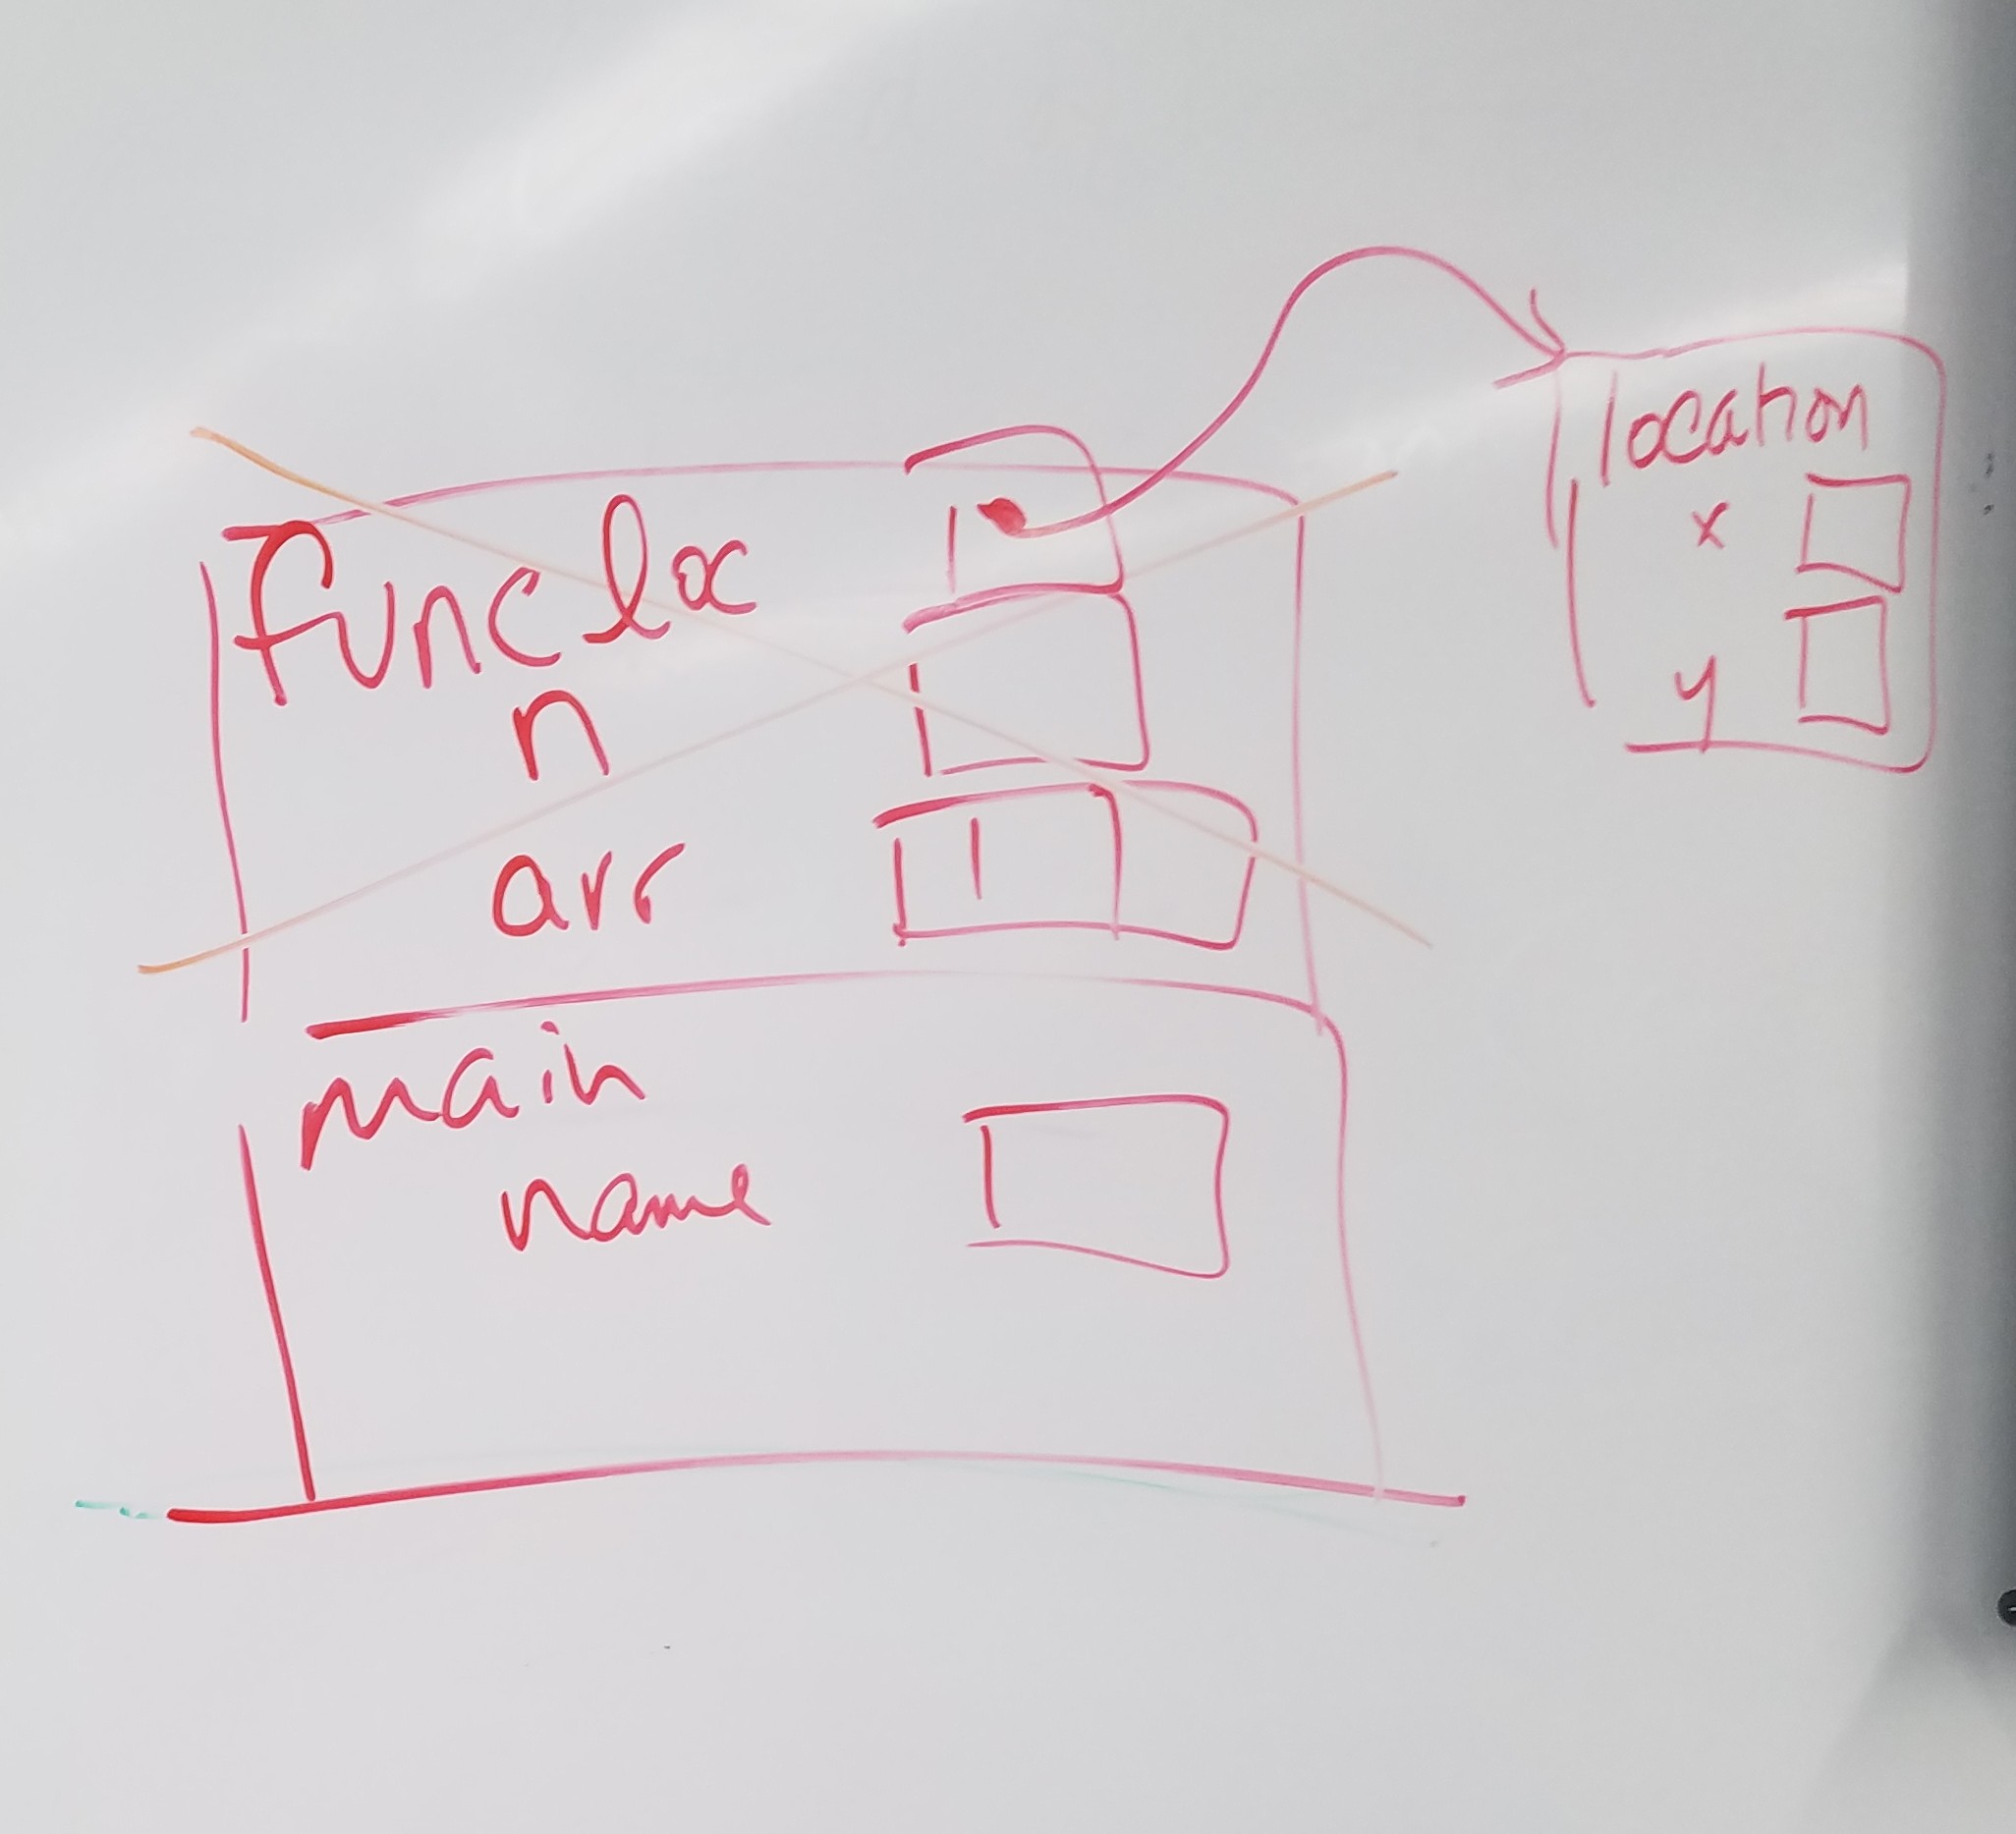 func loc
n
arr
main
name
location
x
y